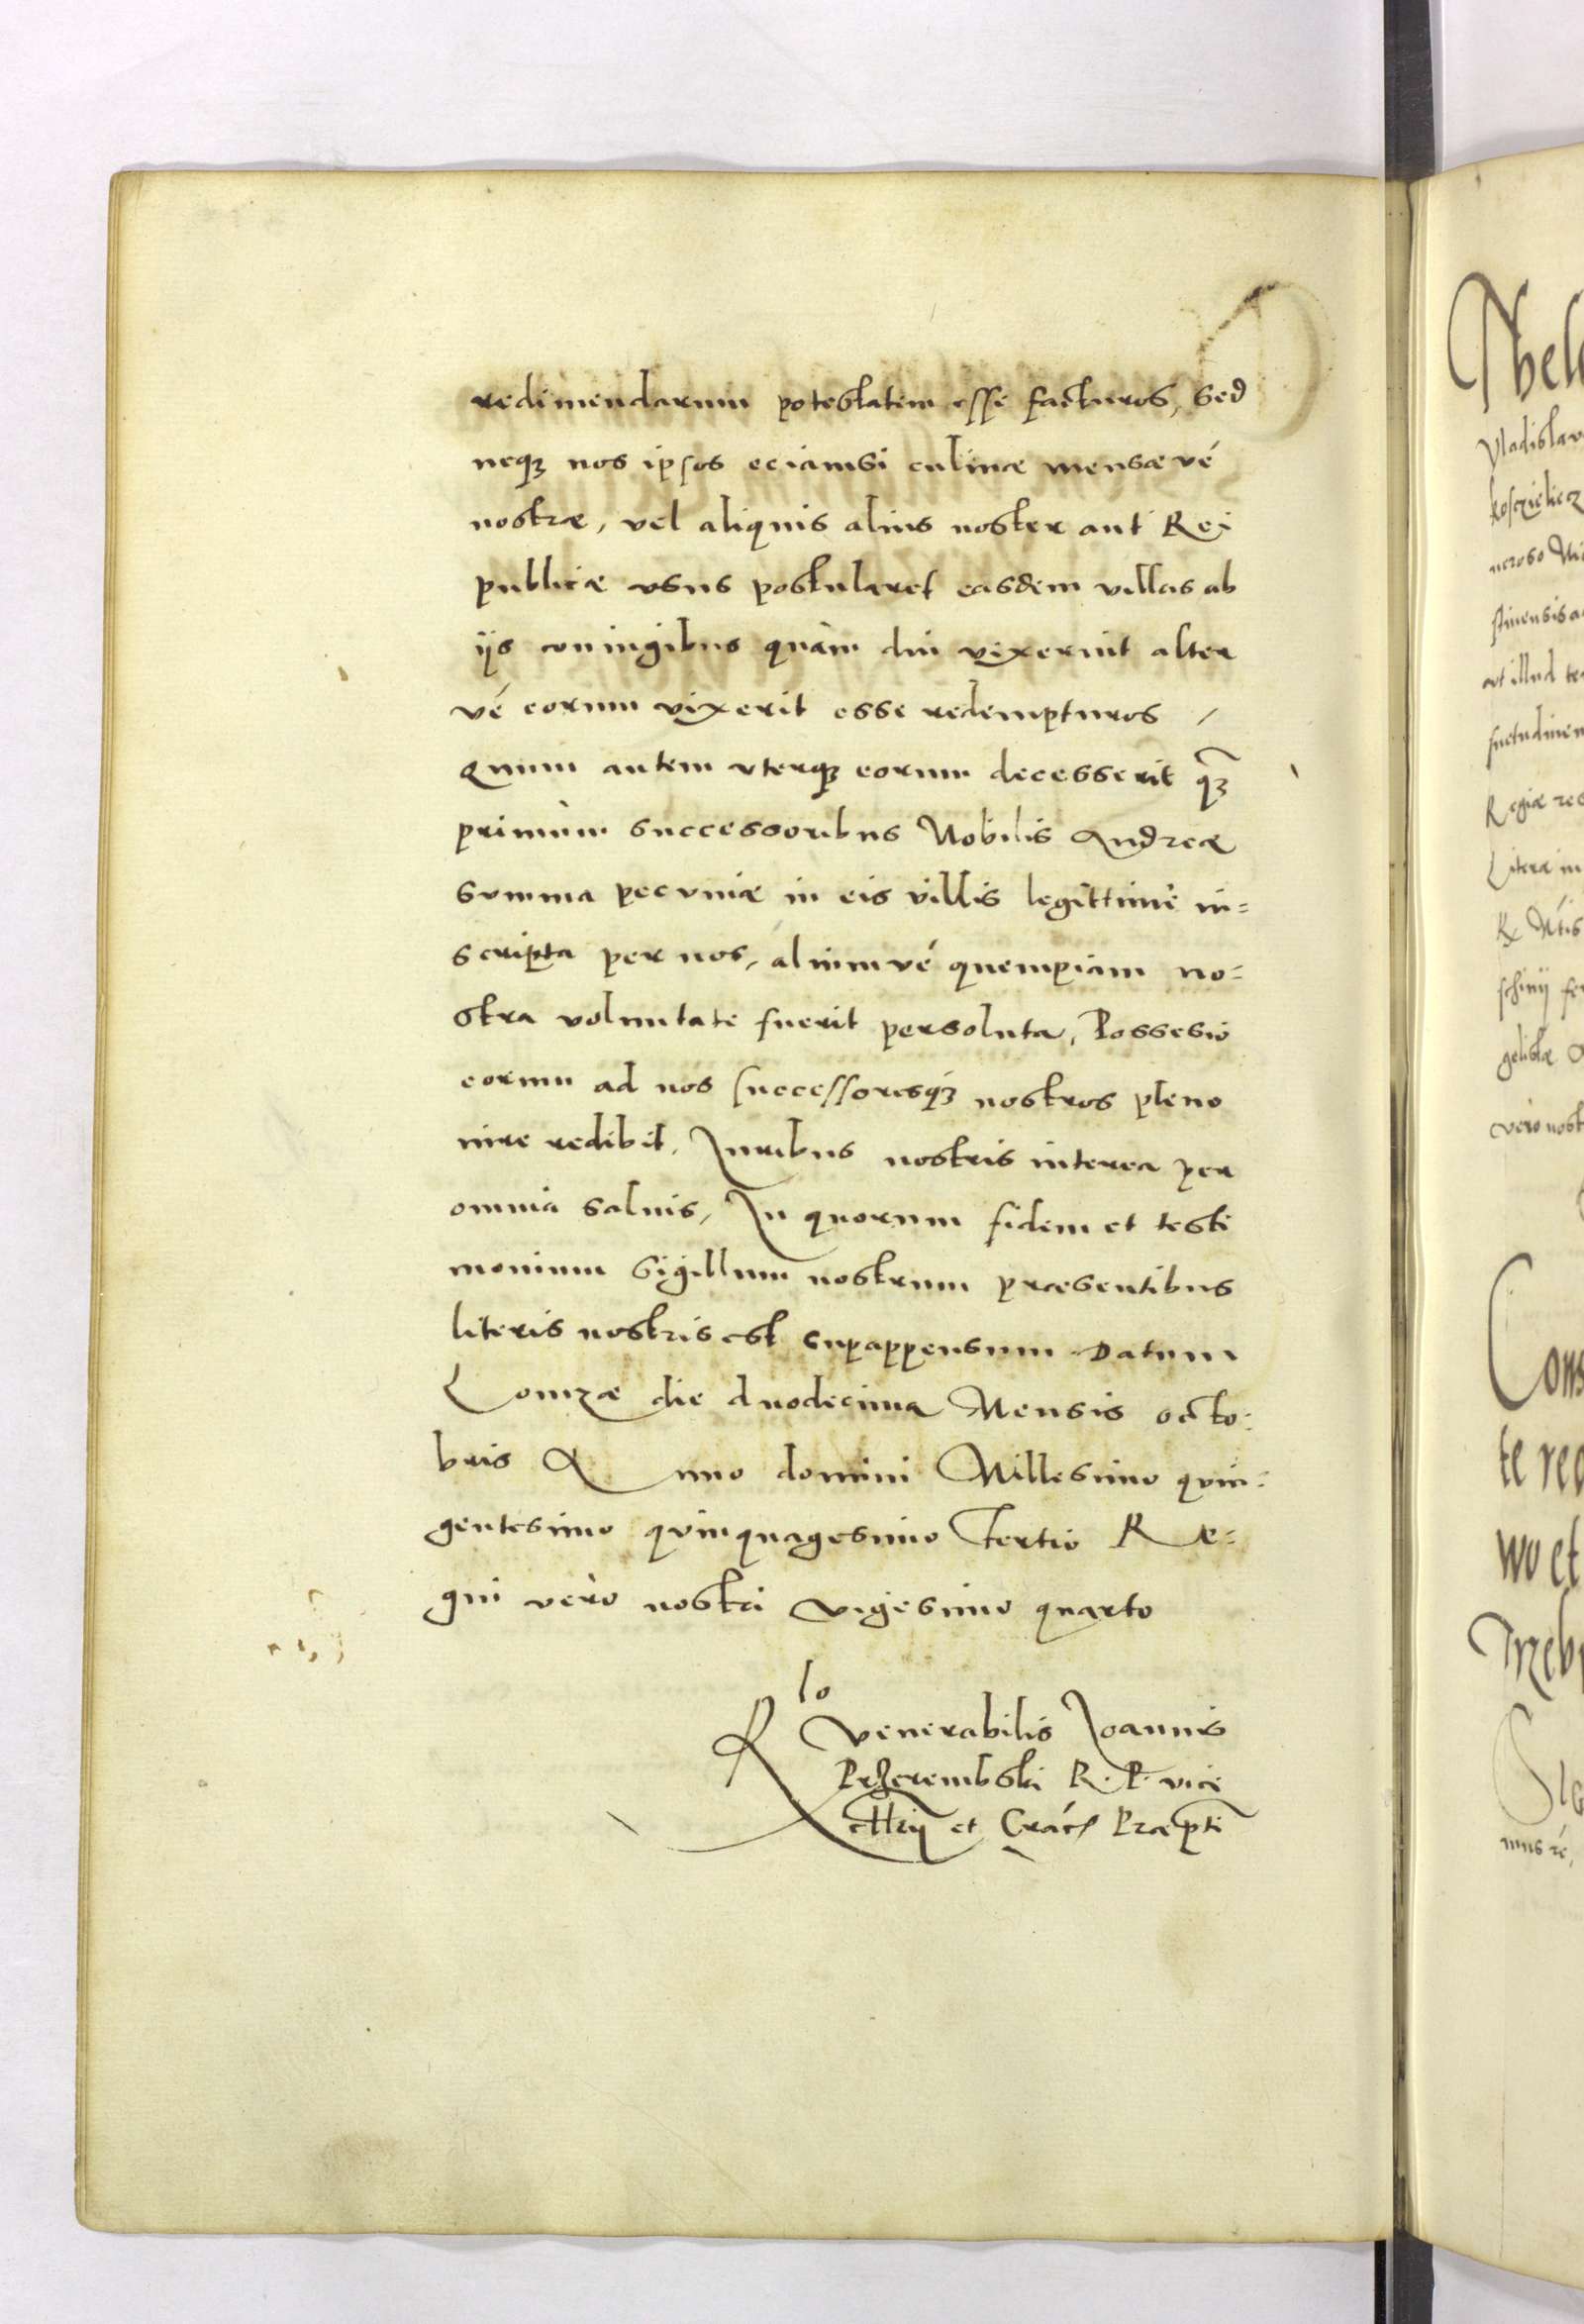 redimendarum potestatem esse facturos, sed
neqз nos ipsos eciamsi culinæ mensæ vé
nostræ, vel aliquis alius noster aut Rei
publicæ usus postularet easdem villas ab
ijs coniugibus quàm diu vixerint alter
vé eorum vixerit esse redempturos,
Quum autem uterqз eorum decesserit
primùm successoribus Nobilis Andreæ
summa pecuniæ in eis villis legittimè in=
scripta per nos, aliumvé quempiam no=
stra voluntate fuerit persoluta, Possesio
eorum ad nos successoresqз nostros pleno
iure redibit. Juribus nostris interea per
omnia saluis, In quorum fidem et testi
monium sigillum nostrum præsentibus
literis nostris est supappensum. Datum
Lomzæ die duodecima Mensis octo:
bris Anno domini Millesimo quin:
gentesimo quinquagesimo Tertio Re=
gni vero nostri vigesimo quarto
Rlo Venerabilis Joannis
Przerembski R. P. vice
et Crac Præptı
Thel
Vladislav
Regiæ res
Literæ in
gelistæ
vero nost
Cons
te rec
wo et
Trzeb